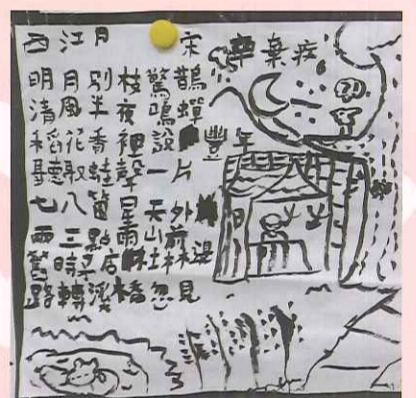 西江月 宋 辛棄疾
明月別枝驚鵲
清風半夜鳴蟬
稻花香裡說豐年
聽取蛙聲一片
七八箇星天外
兩三點雨山前
舊時茅店社林邊
路轉溪橋忽見